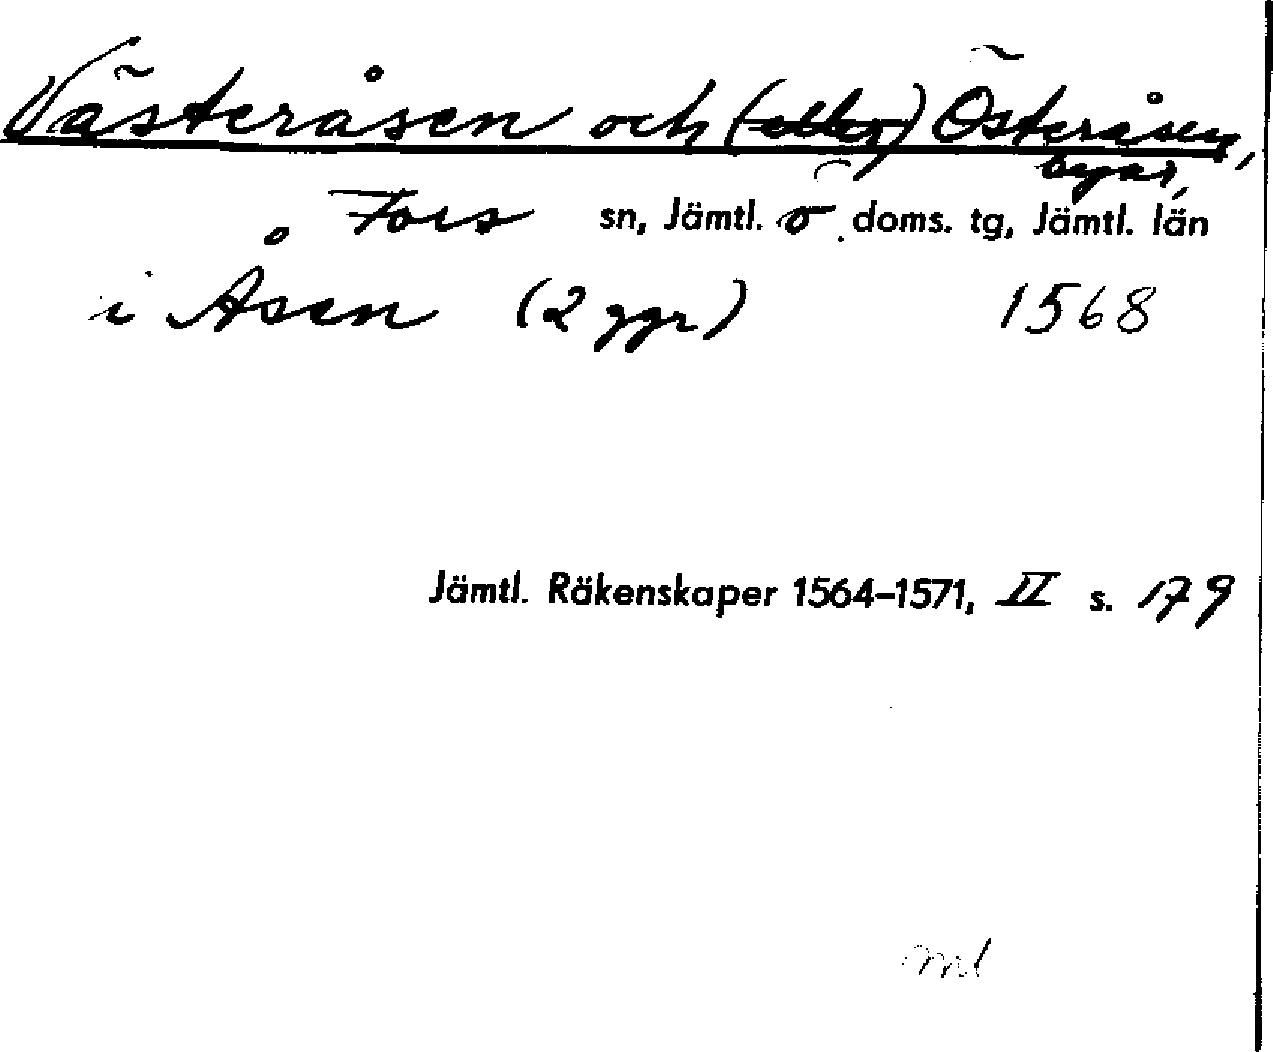 Västeråsen och (eller) Österåsen,
byar,
Fors sn, Jämtl. ö. doms. tg, Jämtl. län
i Åsen (2 ggr) 1568
Jämtl. Räkenskaper 1564–1571, II s. 179